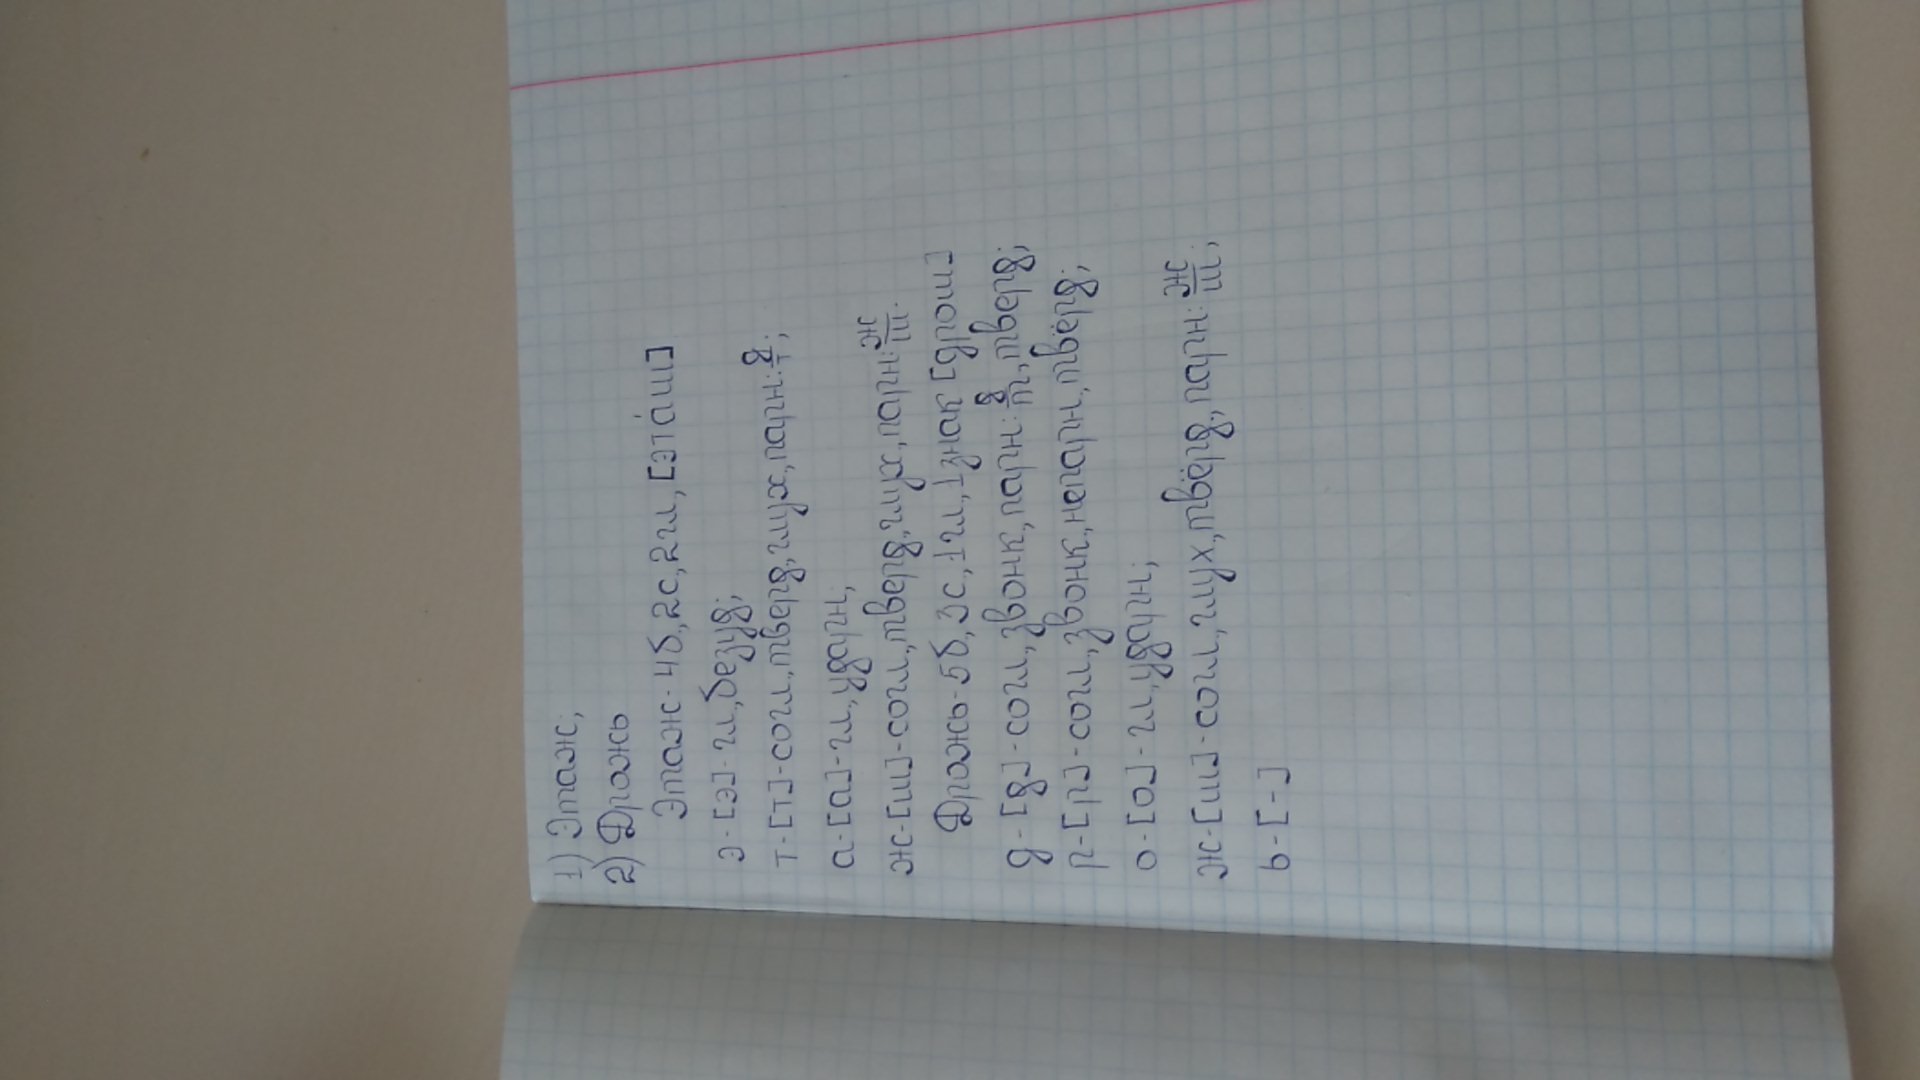 1) Этаж;
2) Дрожь
Этаж - 4 б., 2 с., 2 гл., [эта́ш]
э - [э] - гл., безуд.;
т - [т] - согл., тверд., глух., парн.: д/т.;
а - [а] - гл., ударн.;
ж - [ш] - согл., тверд., глух., парн.: ж/ш.
Дрожь - 5 б., 3 с., 1 гл., 1 знак [дрош]
д - [д] - согл., звонк., парн.: д/т., тверд.;
р - [р] - согл., звонк., непарн., твёрд.;
о - [о] - гл., ударн.;
ж - [ш] - согл., глух., твёрд., парн.: ж/ш.;
ь - [-]